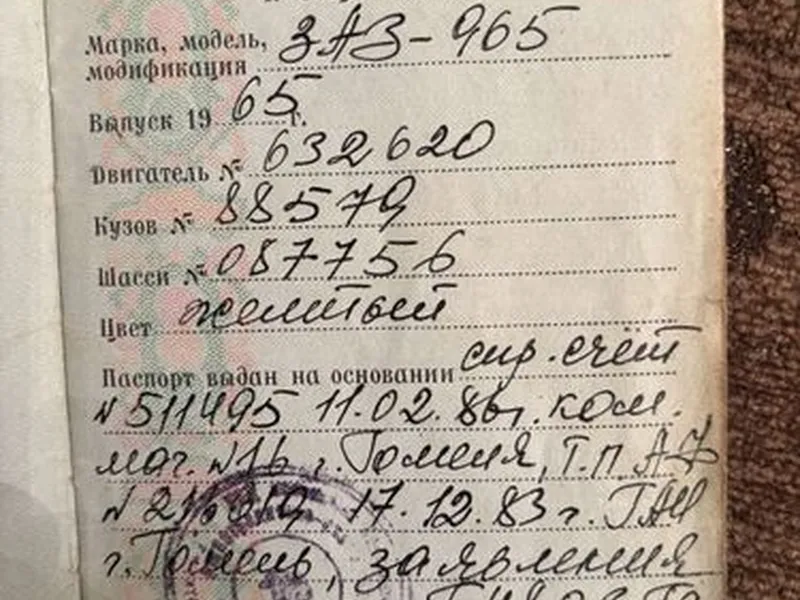 Марка, модель, ЗАЗ-965
модификация
Выпуск 19 65 г.
Двигатель № 632620
Кузов № 88579
Шасси № 087756
Цвет желтый
Паспорт выдан на основании спр. счёт
№ 511495 11.02.86г. ком.
маг. №16 г. Гомеля, Т.П. АЗ
№ 17.12.83 г. ГАИ
г. Гомель, заявления